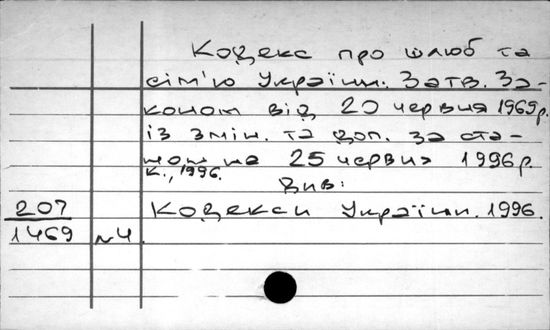 Кодекс про шлюб та
сім'ю України. Затв. За-
коном від 20 червня 1969р.
із змін. та доп. за ста-
ном на 25 червня 1996 р.
К., 1996.
Див:
207 Кодекси України. 1996.
1469 №4.